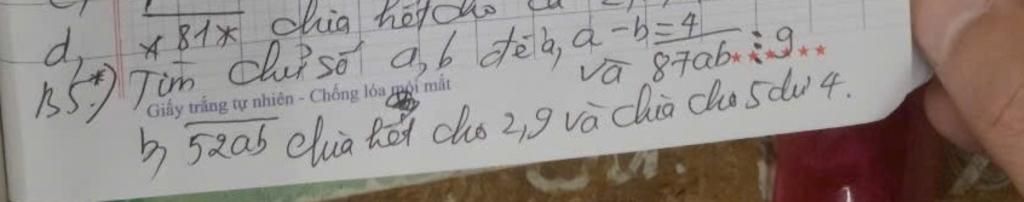 d, *81* chia hết cho cả 2,
B5*) Tìm chữ số a,b để a, a - b = 4
và 87ab ⋮ 9
Giấy trắng tự nhiên - Chống lóa mỏi mắt
b, 52ab chia hết cho 2,9 và chia cho 5 dư 4.